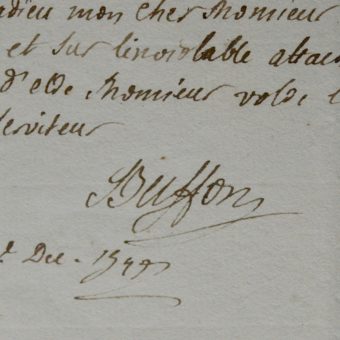 adieu mon cher Monsieur
et sur l'inviolable attac
d'etre Monsieur votre
serviteur
Buffon
Dec. 17